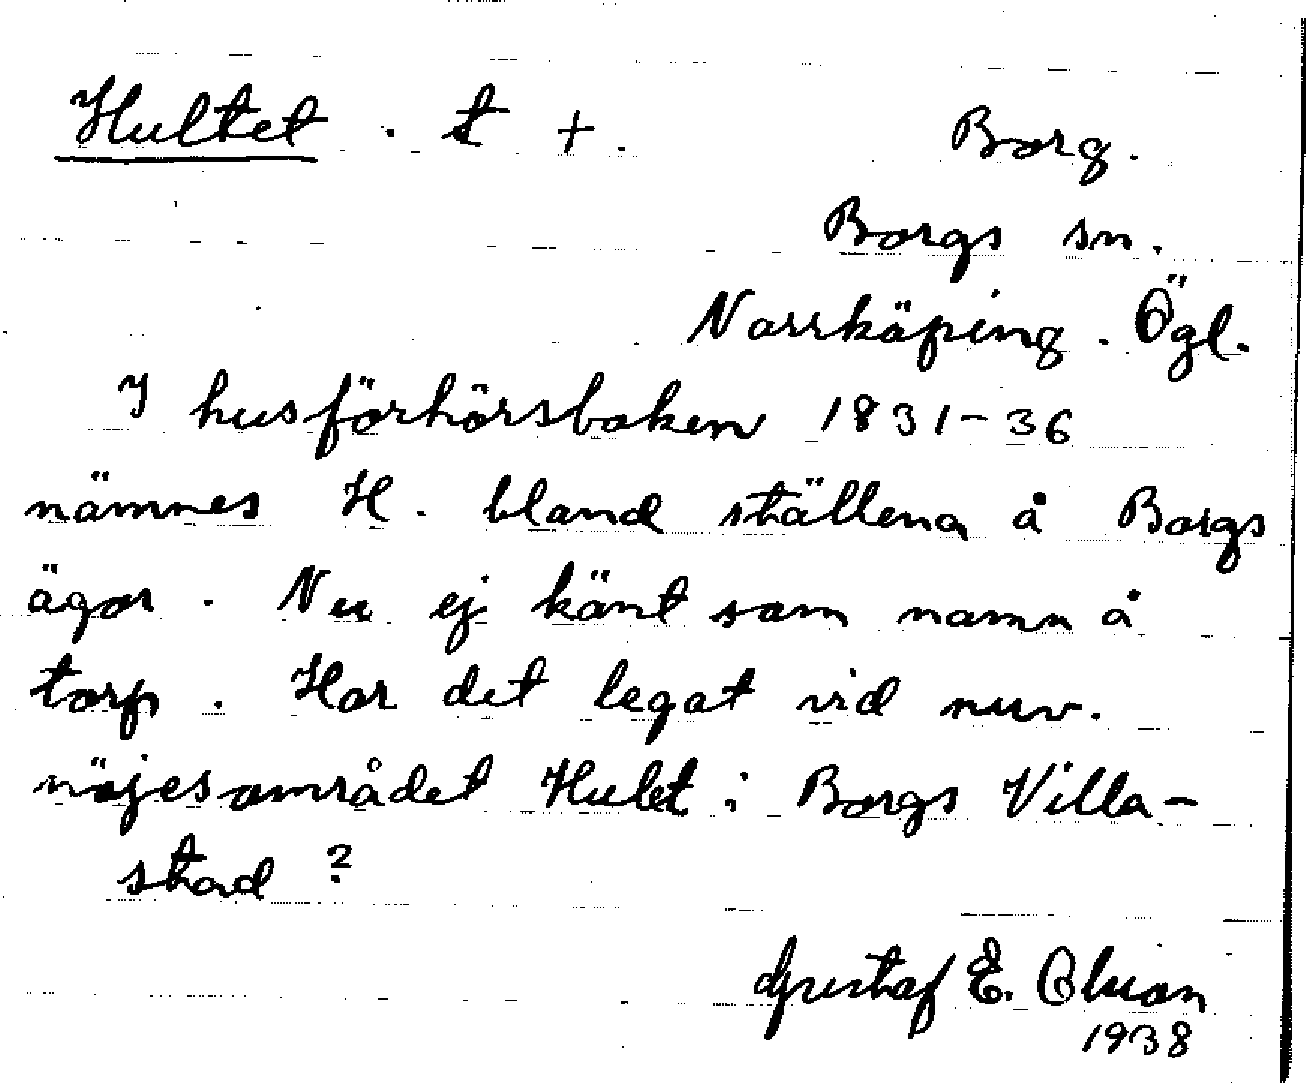 Hultet . t +. Borg.
Borgs sn.
Norrköping. Ögl.
I husförhörsboken 1831-36
nämnes H. bland ställena å Borgs
ägor. Nu ej känt som namn å
torp. Har det legat vid nuv.
nöjesområdet Hulet i Borgs Villa-
stad?
Gustaf E. Olsson
1938